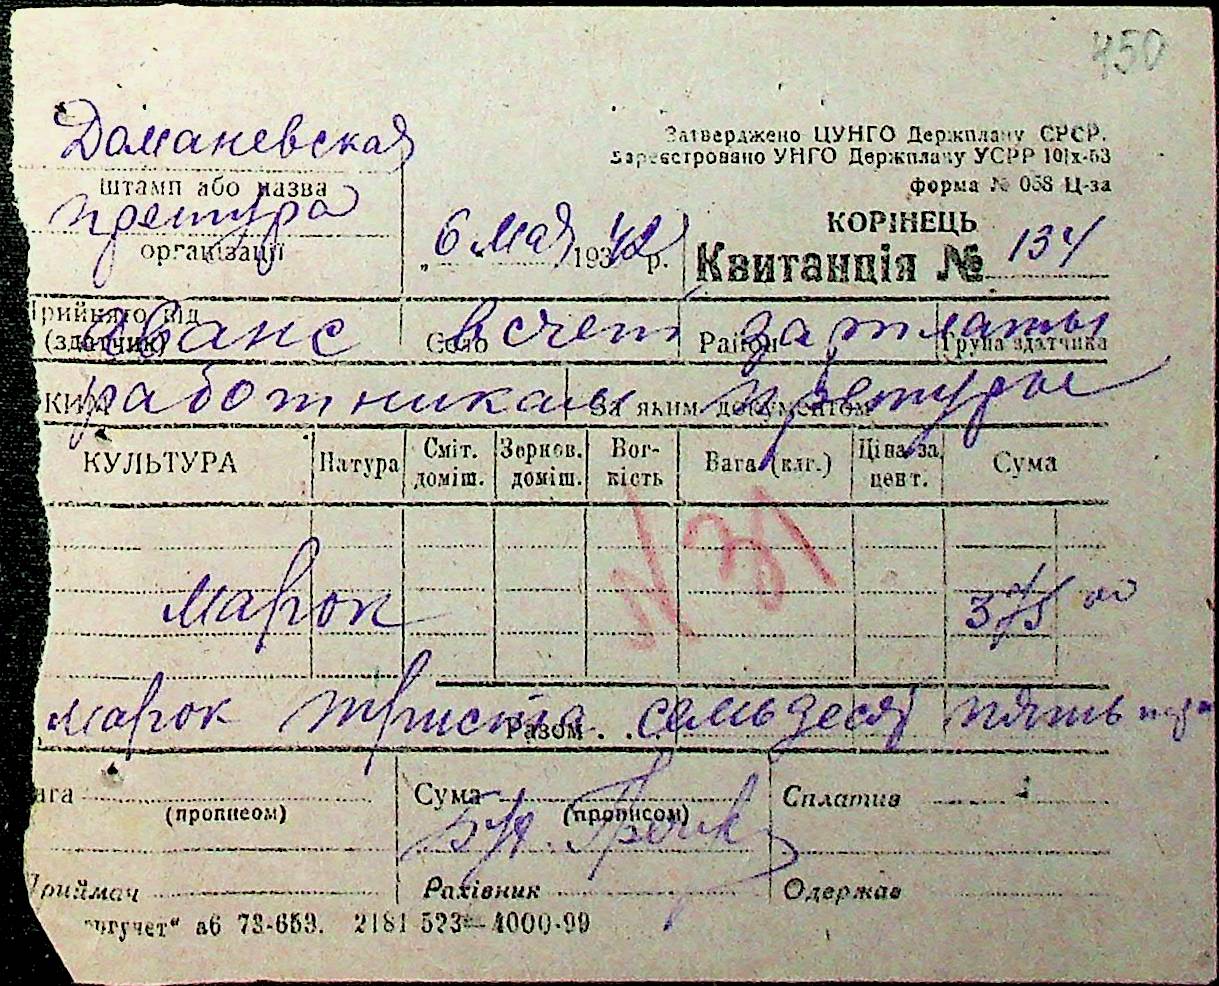 450
Доманевская
Затверджено ЦУНГО Держплану СРСР.
Зареєстровано УНГО Держплану УСРР 10
форма № 058 Ц-за
штамп або назва
претура
організації
КОРІНЕЦЬ
„ 6 мая 193 42 р.
Квитанція № 134
Прийнято від
(здатчик)
Село
Район
Група здатчика
аванс в счет зарплаты
За яким документом
работникам претуры
КУЛЬТУРА Натура Сміт. доміш. Зернов. доміш. Вог-кість Вага (клг.) Ціна за цент. Сума
№ 31
марок 375 00
марок триста семьдесят пять
Разом
ага (прописом) Сума (прописом) Сплатив
Бух.
Приймач Рахівник Одержав
аб 73-653. 2181 523—4000-99